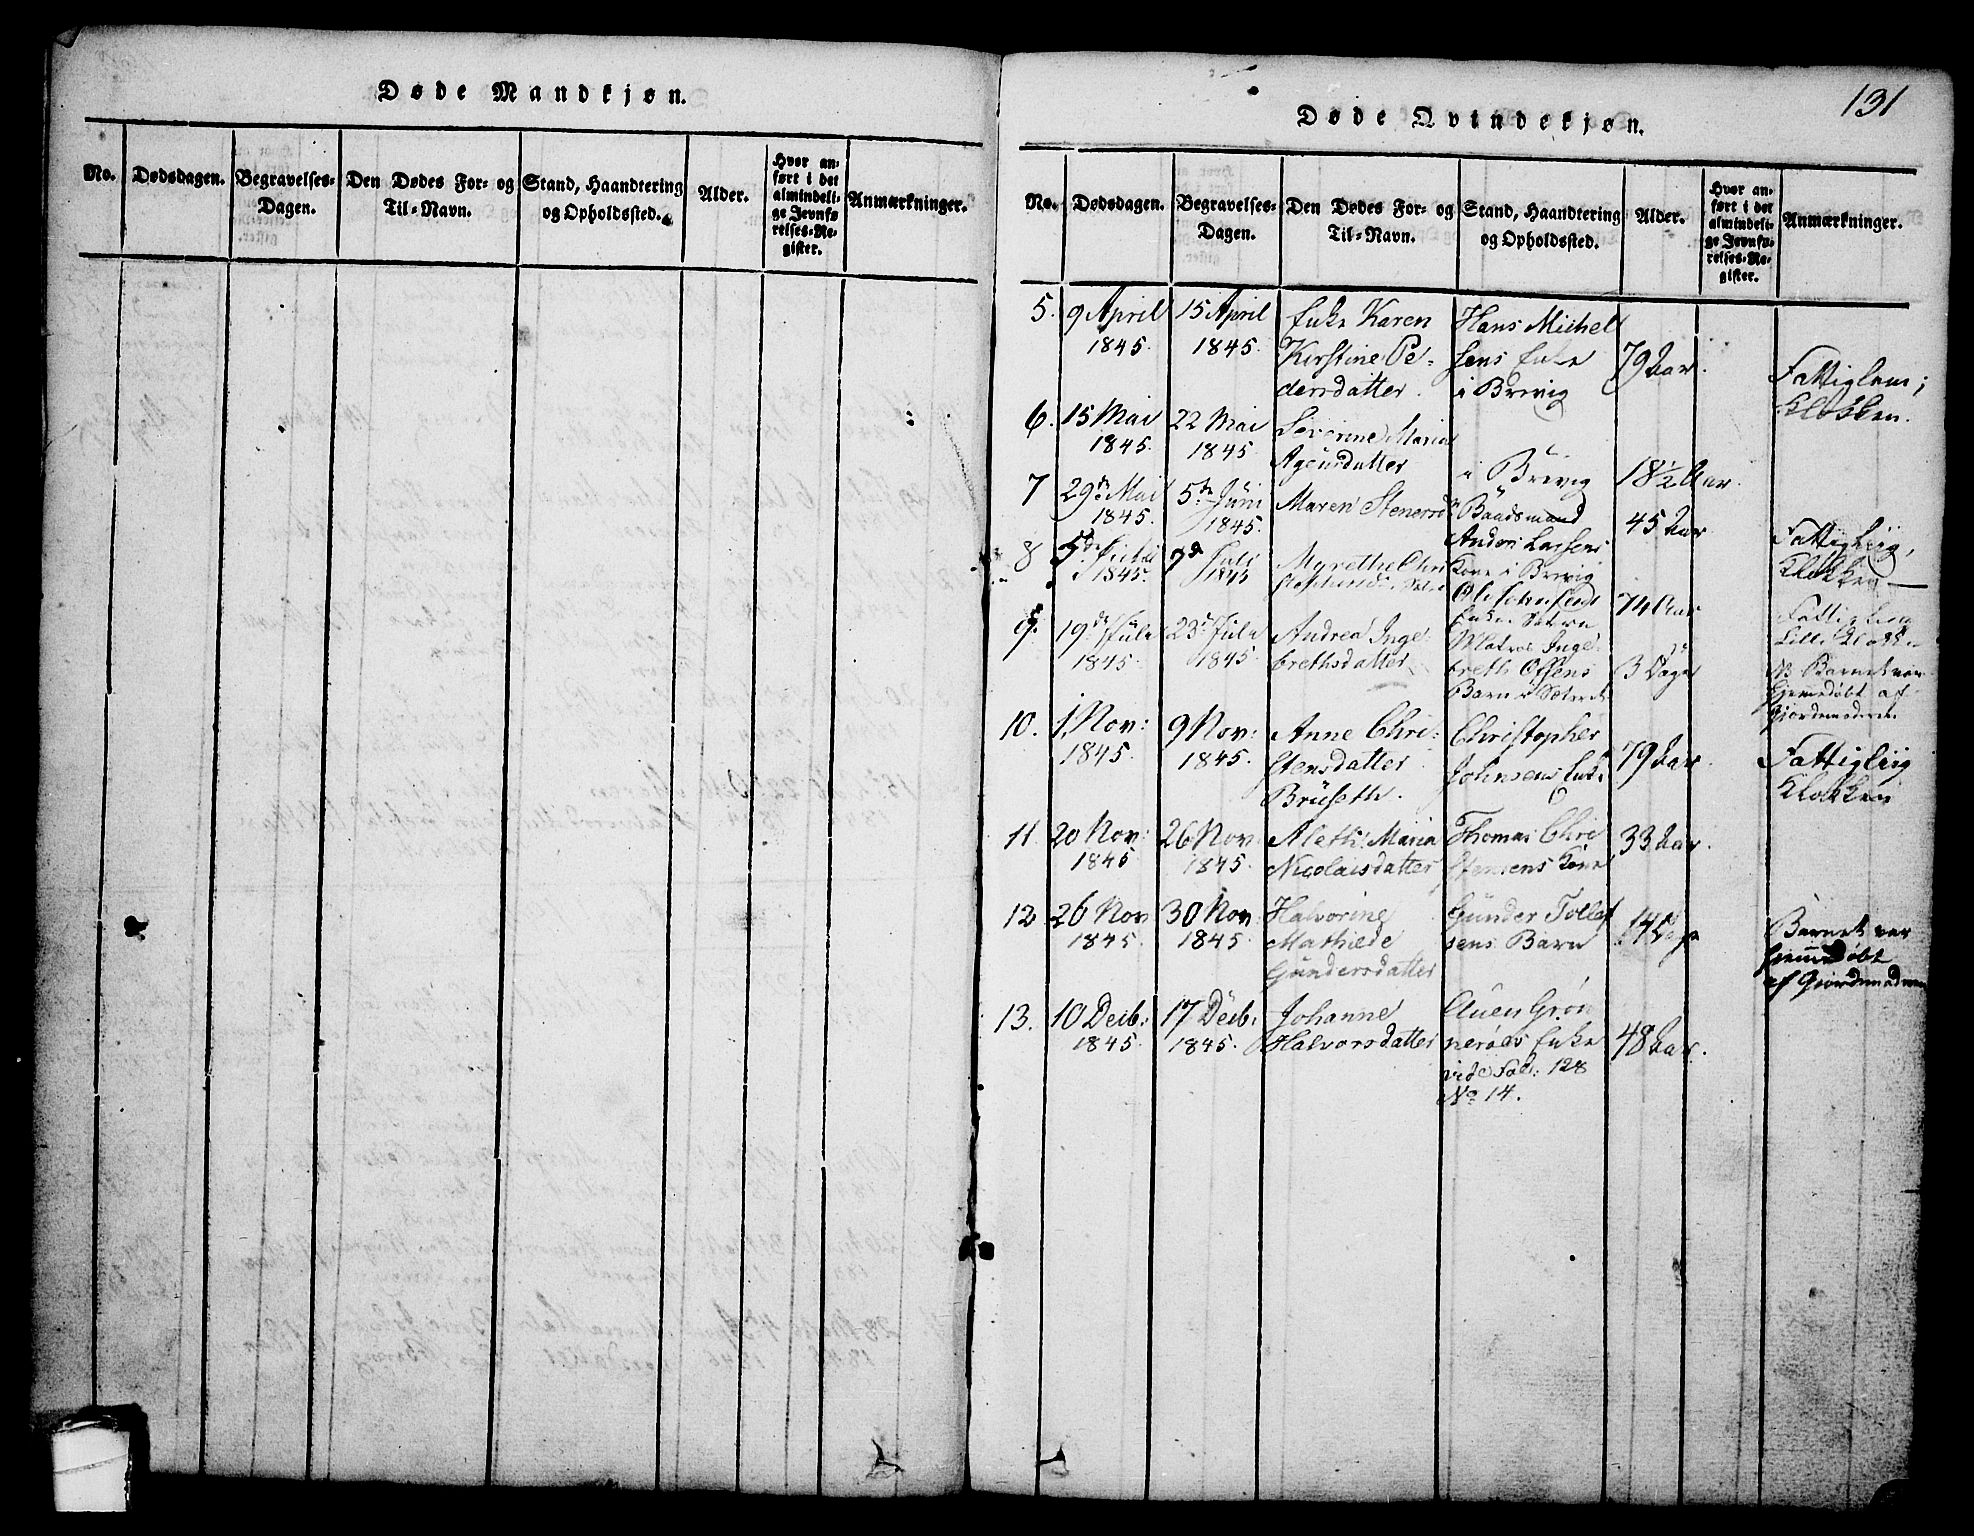 Døde Mandkjøn.
No.
Dødsdagen.
Begravelses-
Dagen.
Den Dødes For- og
Til-Navn.
Stand, Haandtering
og Opholdssted.
Alder.
Hvor an-
ført i det
almindeli-
ge Jevnfø
relses-Re-
gister.
Anmærkninger.
131
Døde Qvindekjøn.
No.
Dødsdagen.
Begravelses-
Dagen.
Den Dødes For- og
Til-Navn.
Stand, Haandtering
og Opholdssted.
Alder.
Hvor an-
ført i det
almindeli-
ge Jevnfø-
relses-Re-
gister.
Anmærkninger.
5.
9 April
1845.
15 April
1845.
Enke Karen
Kirstine Pe-
dersdatter.
Hans Michel
sens Enke
i Brevig
79 Aar.
Fattiglem;
Klokken.
6.
15 Mai
1845.
22 Mai
1845
Severine Maria
Agensdatter
i Brevig
18½ Aar.
7
29de Mai
1845.
5te Juni
1845.
Maren Stenersd.
Baadsmand
Anders Larsens
Kone i Brevig
45 Aar
Fattigliig,
Klokken
8
5te
1845.
7de Juli
1845
Myrethe Chri
Enke
74 Aar
Fattiglem
Lille Klokk
9.
19de Jule
1845.
23de Jule
1845.
Andrea Inge-
brethsdatter
Matros Inge-
breth Offens
Barn i
3 Dage
NB Barnet var
Hjemedøbt af
Gjordemoderen
10.
1. Nov:
1845.
9 Nov:
1845.
Anne Chri-
stensdatter
Bruseth.
Christopher
Johnsens Enke
79 Aar.
Fattigliig
Klokken
11.
20 Nov:
1845
26 Nov
1845.
Aleth: Maria
Nicolaisdatter
Thomas Chri
stensens Kone
33 Aar.
12
26 Nov
1845.
30 Nov
1845.
Halvorine
Mathilde
Gundersdatter
Gunder Tollef
sens Barn
14 Dage
Barnet var
hjemmedøbt
af Gjordemoderen
13.
10 Decb.:
1845.
17 Decb.
1845.
Johanne
Halvorsdatter
Auen Grøn
nerøes Enke
vide Fol: 128
No 14.
48 Aar.